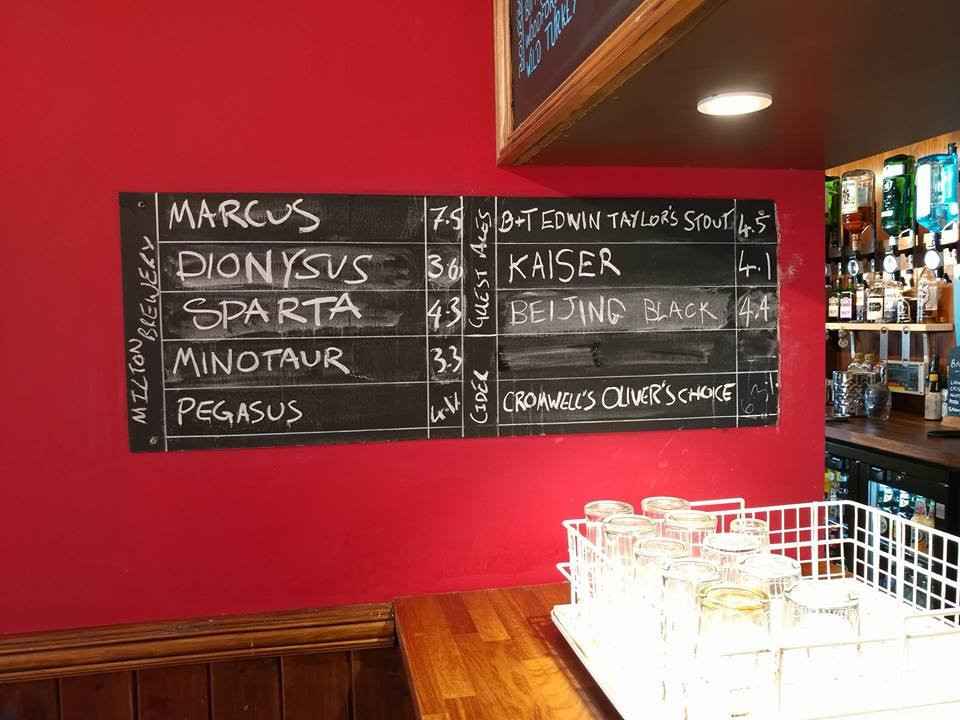 WILD TURKEY
MILTON BREWERY
MARCUS 7.5
DIONYSUS 3.6
SPARTA 4.3
MINOTAUR 3.3
PEGASUS
GUEST ALES
B+T EDWIN TAYLOR'S STOUT 4.5
KAISER 4.1
BEIJING BLACK 4.4
CIDER
CROMWELL'S OLIVER'S CHOICE